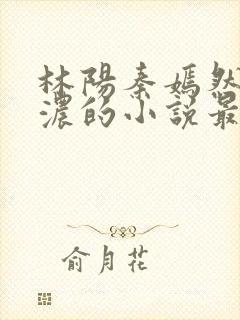 林陽秦嫣然
濃的小說最
俞月花